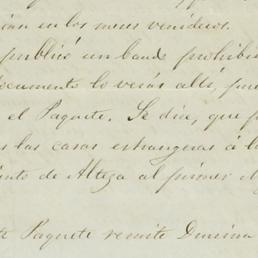 ían en los meses venideros.
publicó un bando prohibie
documento lo verás allí, pue
el Paquete. Se dice, que p
s las casas estrangeras á l
nto de Alteza al primer M
te Paquete remite